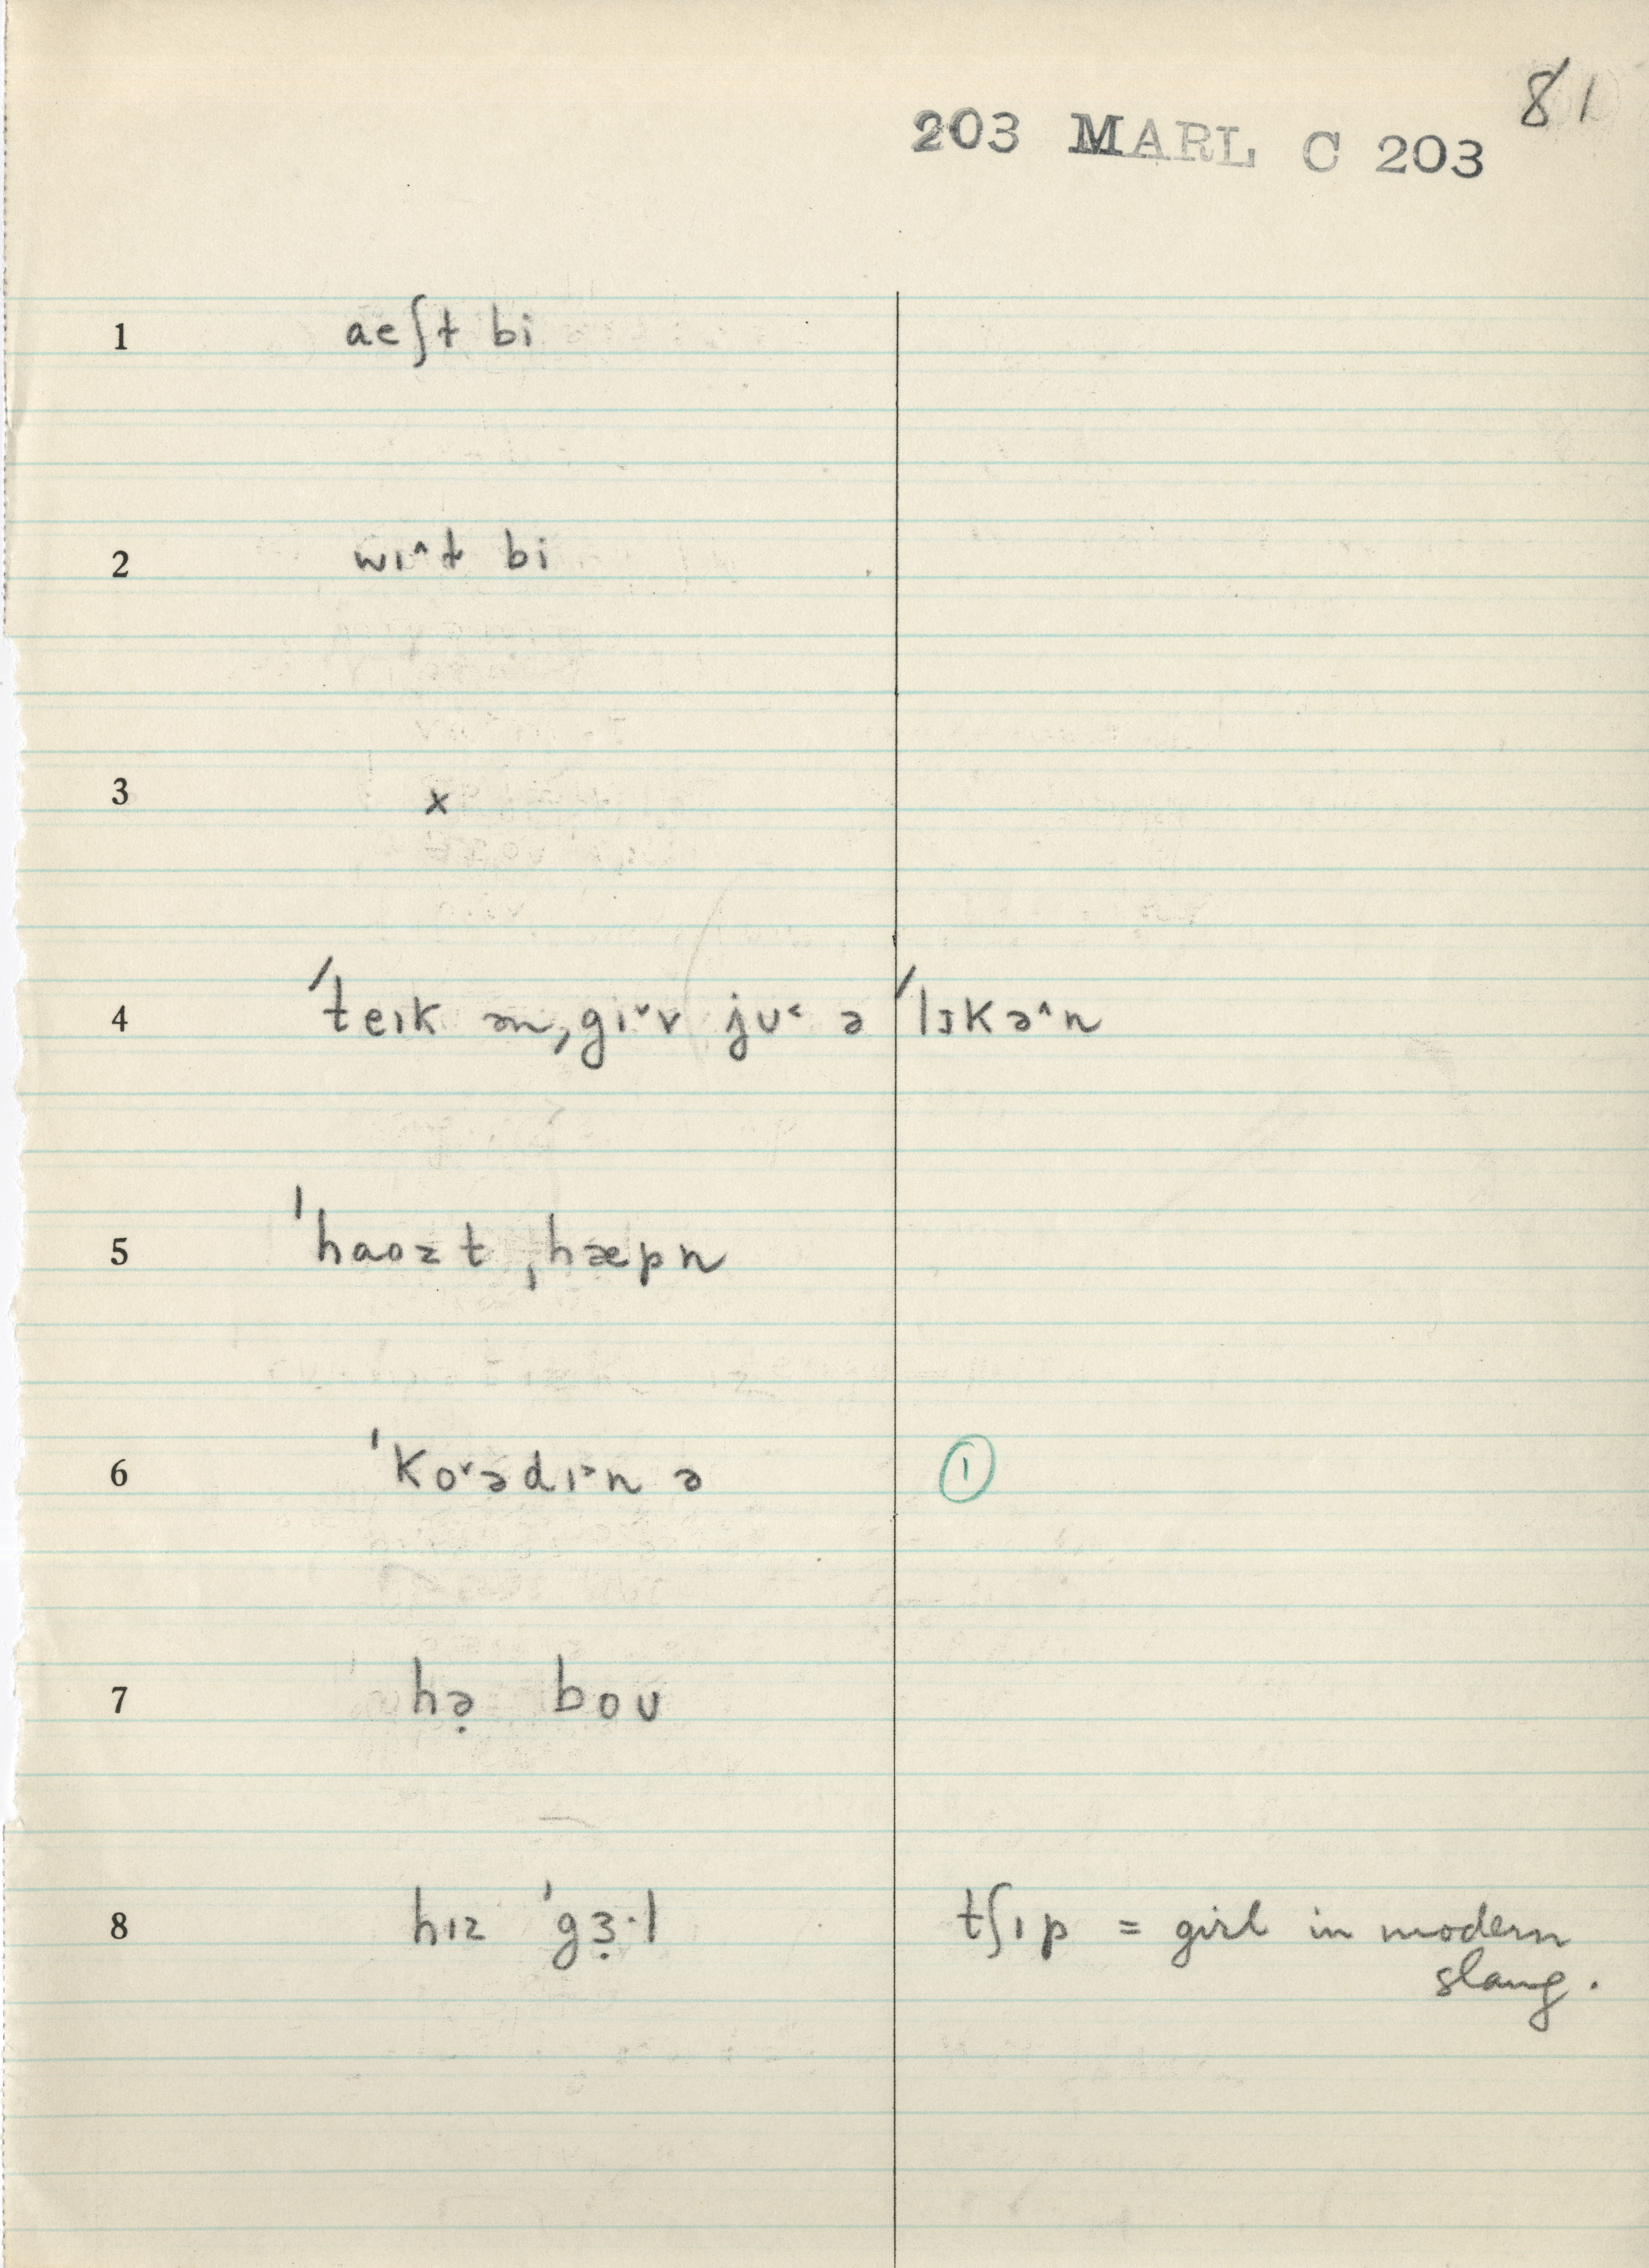 81
203 MARL C 203
1 aeʃt bi
2 wɪ^t bi
3 x
4 ˈteɪk ən ˌgɪ˅v jʊ˂ ə ˈlɪkə^n
5 ˈhaozt ˌhæpn
6 ˈko˅ədɪ˃n ə ①
7 hə̣ boʊ
8 hɪz ˈgɜ̣·l tʃɪp = girl in modern
slang.